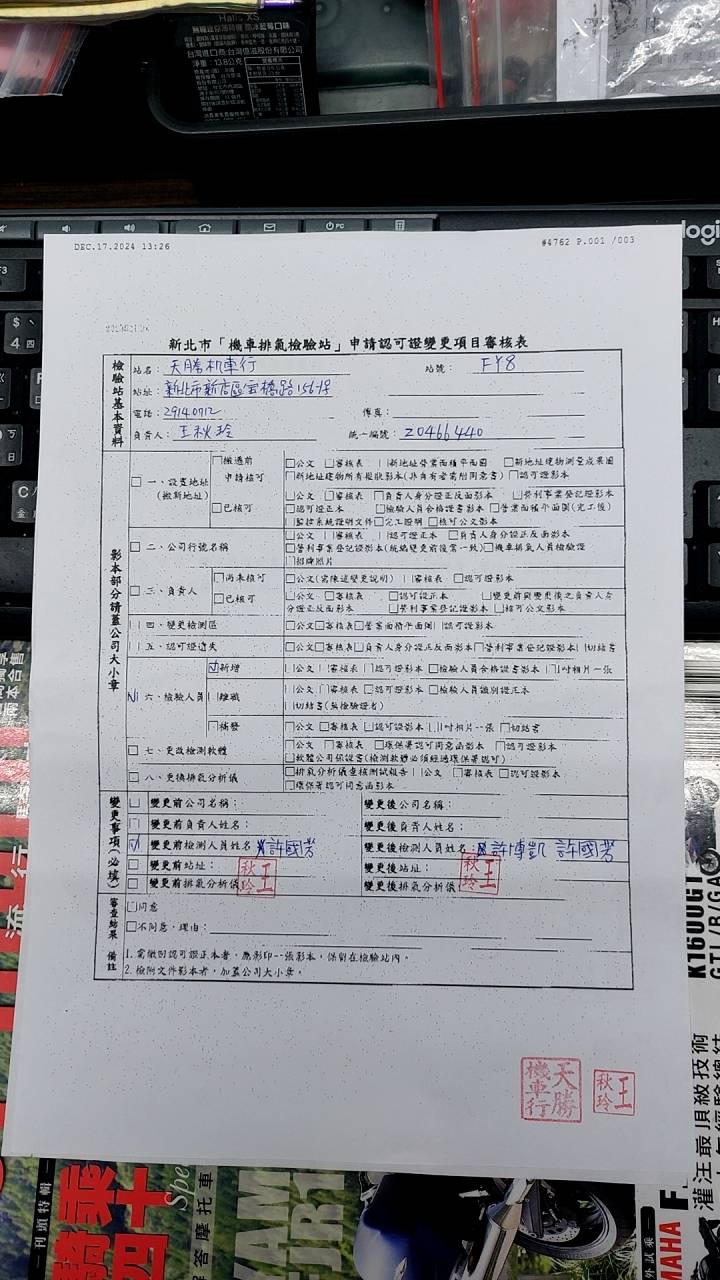 Halls XS
無糖迷你薄荷糖 酷冰藍莓口味
台灣進口商:台灣億滋股份有限公司
淨重:13.8公克
PC
logi
F3
4
DEC.17.2024 13:26
#4762 P.001 /003
新北市「機車排氣檢驗站」申請認可證變更項目審核表
檢驗站基本資料
站名: 天勝机車行
站號: FY8
站址: 新北市新店區宝橋路156号
電話: 29140712
傳真:
負責人: 王秋玲
統一編號: 20466440
影本部分請蓋公司大小章
□ 一、設置地址
(搬新地址)
□搬遷前
申請核可
□公文 □審核表 □新地址營業面積平面圖 □新地址建物測量成果圖
□新地址建物所有權狀影本(非自有者需附同意書) □認可證影本
□已核可
□公文 □審核表 □負責人身分證正反面影本 □營利事業登記證影本
□認可證正本 □檢驗人員合格證書影本 □營業面積平面圖(完工後)
□監控系統證明文件 □完工證明 □核可公文影本
□ 二、公司行號名稱
□公文 □審核表 □認可證正本 □負責人身分證正反面影本
□營利事業登記證影本(統編變更前後需一致) □機車排氣人員檢驗證
□招牌照片
□ 三、負責人
□尚未核可
□公文(需陳述變更說明) □審核表 □認可證影本
□已核可
□公文 □審核表 □認可證正本 □變更前與變更後之負責人身
分證正反面影本 □營利事業登記證影本 □核可公文影本
□ 四、變更檢測區
□公文 □審核表 □營業面積平面圖 □認可證影本
□ 五、認可證遺失
□公文 □審核表 □負責人身分證正反面影本 □營利事業登記證影本 □切結書
☑ 六、檢驗人員
☑新增
□公文 □審核表 □認可證影本 □檢驗人員合格證書影本 □1吋相片一張
□離職
□公文 □審核表 □認可證影本 □檢驗人員識別證正本
□切結書(無檢驗證者)
□補發
□公文 □審核表 □認可證影本 □1吋相片一張 □切結書
□ 七、更改檢測軟體
□公文 □審核表 □環保署認可同意函影本 □認可證影本
□軟體公司保證書(檢測軟體必須經過環保署認可)
□ 八、更換排氣分析儀
□排氣分析儀查核測試報告 □公文 □審核表 □認可證影本
□環保署認可同意函影本
變更事項(必填)
□ 變更前公司名稱:
變更後公司名稱:
□ 變更前負責人姓名:
變更後負責人姓名:
☑ 變更前檢測人員姓名: 許國芳
變更後檢測人員姓名: 許博凱 許國芳
□ 變更前站址:
變更後站址:
□ 變更前排氣分析儀
變更後排氣分析儀
王秋玲
王秋玲
審查結果
□同意
□不同意,理由:
備註
1.需繳回認可證正本者,應影印一張影本,保留在檢驗站內。
2.檢附文件影本者,加蓋公司大小章。
天勝機車行
王秋玲
流行
K1600GT
GTL/B/GA
灌注最頂級技術
刊頭特輯
乘十
騎四
Spe
解答摩托車
YAM
JR1
YAMAHA